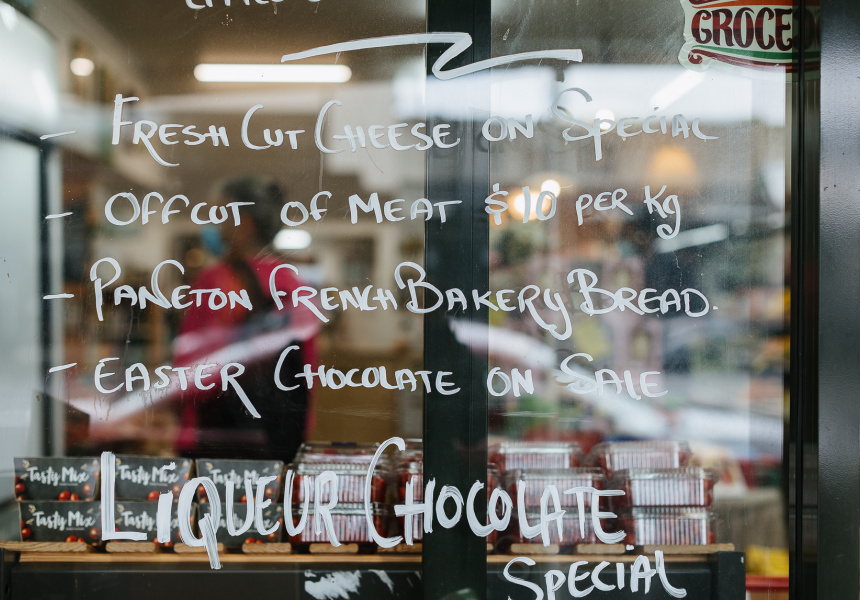 GROCE
- FRESH CUT CHEESE ON SPECIAL
- OFFCUT OF MEAT $10 PER Kg
- PANETON FRENCH BAKERY BREAD.
- EASTER CHOCOLATE ON SALE
Tasty Mix Tasty Mix Tasty Mix
Tasty Mix Tasty Mix Tasty Mix
LIQUEUR CHOCOLATE
SPECIAL